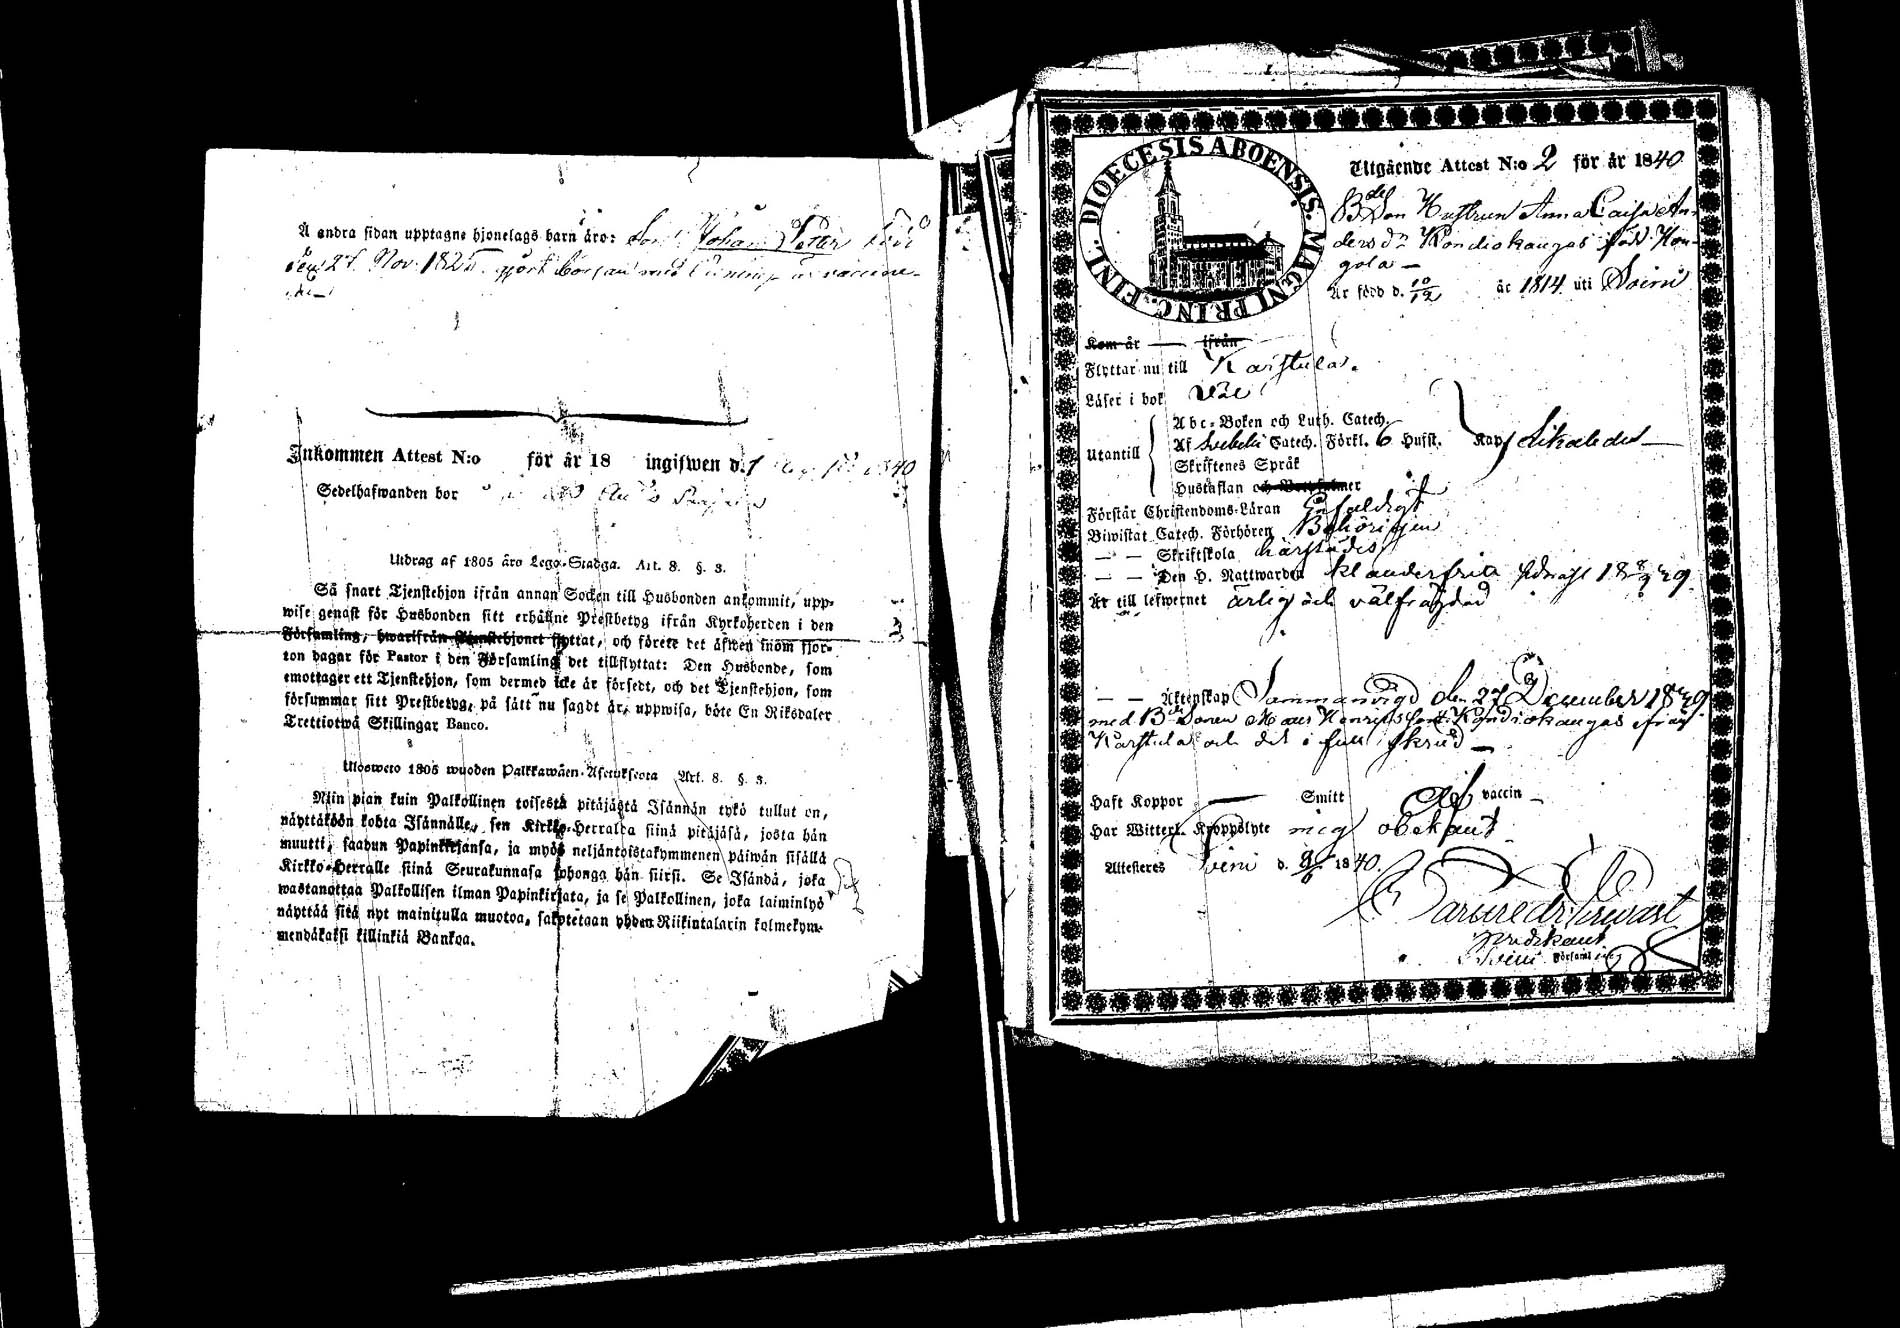 Å andra sidan upptagne hjonelags barn äro: Son Johan Petter född
den 27 Nov. 182
Inkommen Attest N:o för år 18 ingifwen d. 1840
Sedelhafwanden bor
Utdrag af 1805 års Lego-Stadga. Art. 8. §. 3.
Så snart Tjenstehjon ifrån annan Socken till Husbonden ankommit, upp-
wise genast för Husbonden sitt erhållne Prestbetyg ifrån Kyrkoherden i den
Församling, hwarifrån Tjenstehjonet flyttat, och förete det äfwen inom fjor-
ton dagar för Pastor i den Församling det tillflyttat: Den Husbonde, som
emottager ett Tjenstehjon, som dermed icke är försedt, och det Tjenstehjon, som
försummar sitt Prestbetyg, på sätt nu sagdt är, uppwisa, böte En Riksdaler
Trettiotwå Skillingar Banco.
Ulosweto 1805 wuoden Palkkawäen-Asetuksesta Art. 8. §. 3.
Niin pian kuin Palkollinen toisesta pitäjästä Isännän tykö tullut on,
näyttäköön kohta Isännälle, sen Kirkko-Herralda siinä pitäjäsä, josta hän
muutti, saadun Papinkirjansa, ja myös neljäntoistakymmenen päiwän sisällä
Kirkko-Herralle siinä Seurakunnasa johonga hän siirsi. Se Isändä, joka
wastanottaa Palkollisen ilman Papinkirjata, ja se Palkollinen, joka laiminlyö
näyttää sitä nyt mainitulla muotoa, sakotetaan yhden Riikintalarin kolmekym-
mendäkaksi killinkiä Bankoa.
DIOECESIS ABOENSIS. MAGNI PRINC. FINL.
Utgående Attest N:o 2 för år 1840
Bdel Don Hustrun Anna Caisa An-
ders dr Kondiokangas född Kon-
gola —
Är född d. 10/12 år 1814 uti Soini
Kom år — ifrån
Flyttar nu till Karstula.
Läser i bok Väl
Abc-Boken och Luth. Catech.
Utantill Af Svebelii Catech. Förkl. 6 Hufst. Kap. Likaledes —
Skriftenes Språk
Hustaflan och Botpsalmer
Förstår Christendoms-Läran Enfaldigt
Biwistat Catech. Förhören Behörigen
— — Skriftskola härstädes
— — Den H. Nattwarden klanderfritt sednast 18 8/9 39
Är till lefwernet ärlig och välfrägdad
— — Äktenskap Sammanvigd den 27 December 1839
med Bde Sonen Henriksson Kondiokangas från
Karstula och det i full skrud —
Haft Koppor — Smitt Af vaccin —
Har Witterl. Kroppslyte mig obekant
Attesteres Soini d. 1840.
predikant
Soini Församling